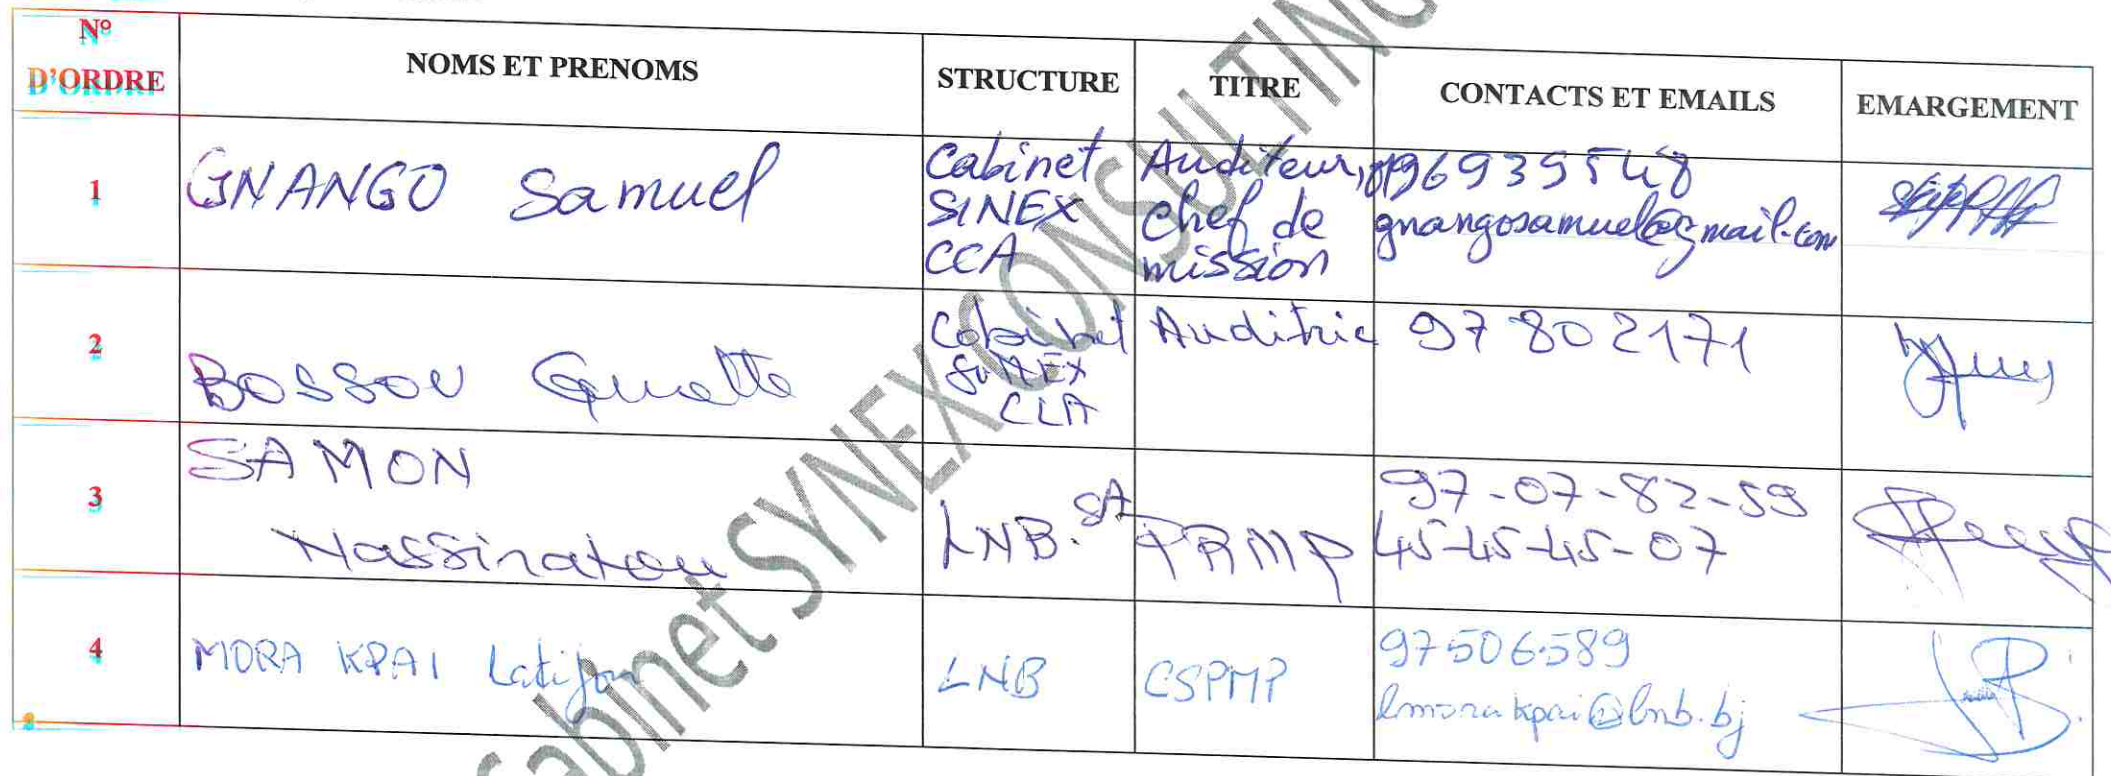 N°
D'ORDRE
NOMS ET PRENOMS
STRUCTURE
TITRE
CONTACTS ET EMAILS
EMARGEMENT
1
GNANGO Samuel
Cabinet
SINEX
CCA
Auditeur,
Chef de
mission
96939548
gnangosamuel@gmail.com
2
BOSSOU
Cabinet
SINEX
Auditric
97802171
3
SAMON
Nassiratou
LNB.SA
PRMP
97-07-82-59
45-45-45-07
4
MORA KPAI Latifou
LNB
CSPMP
97506589
lmorakpai@lnb.bj
Cabinet SYNEX CONSULTING